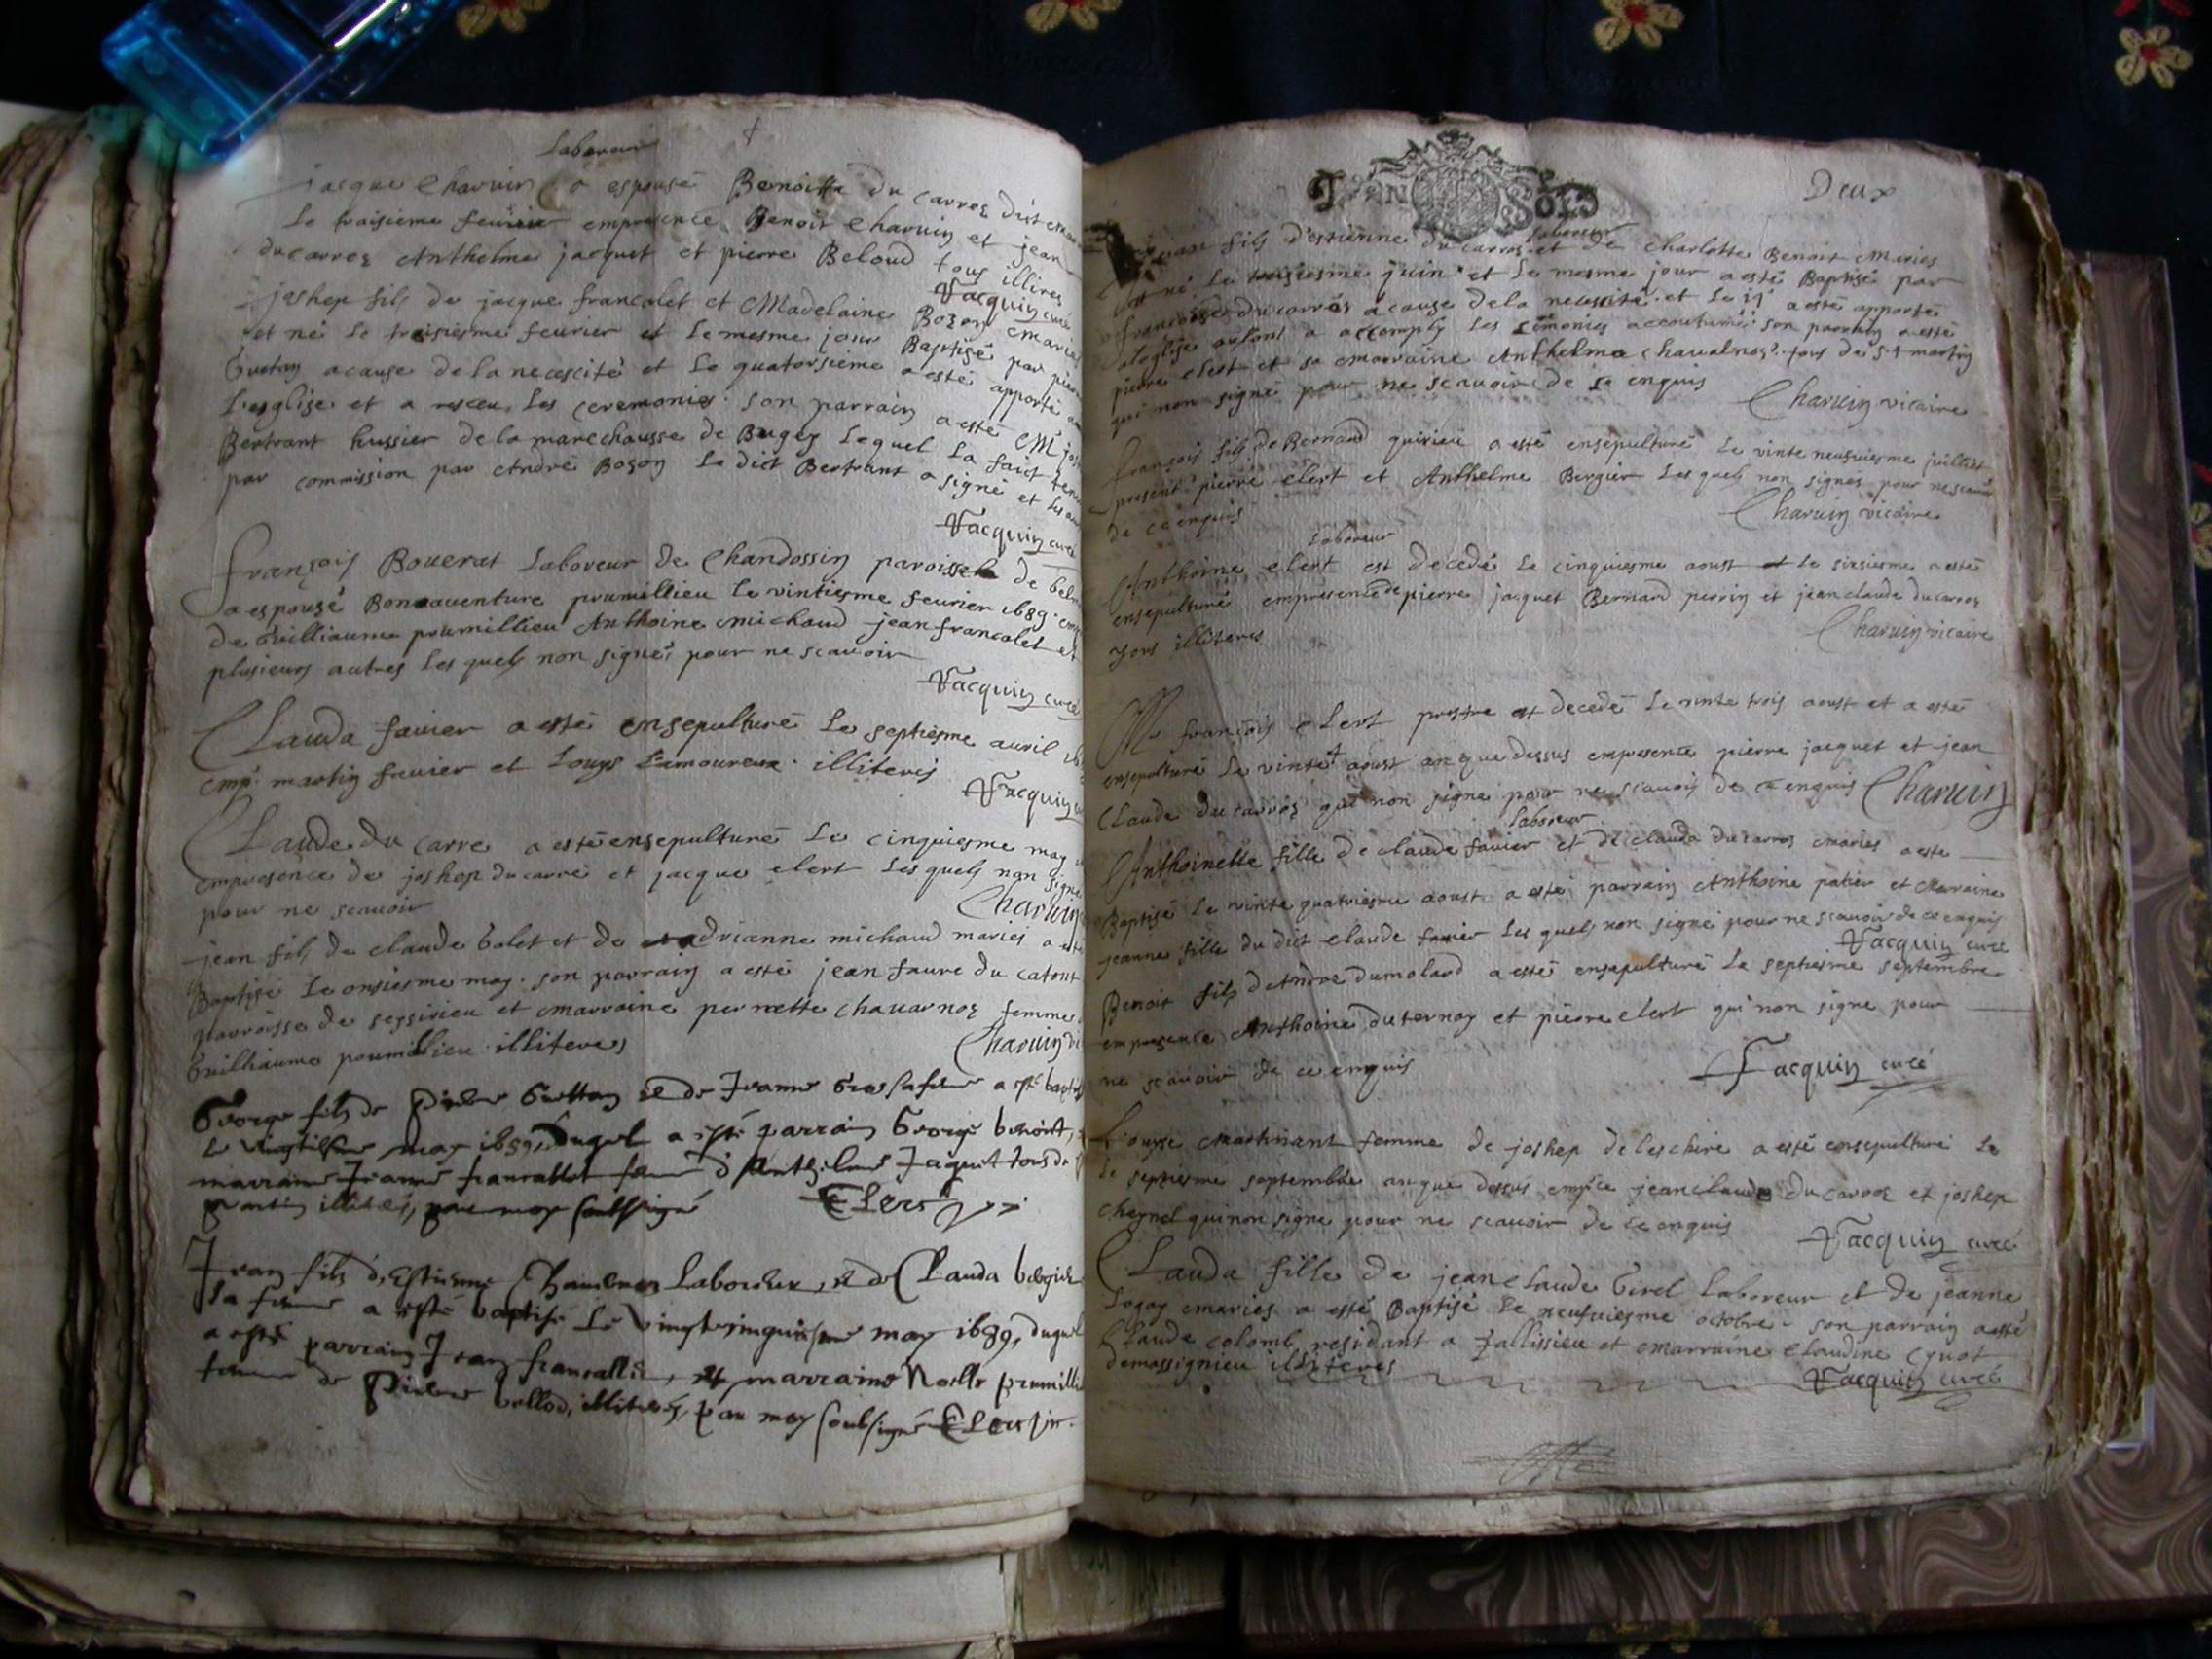 laboreur
jacque Charuin a espousé Benoitte du carroz dict
le troisieme feurier empresence Benoit Charuin et jean
ducarroz Anthelme jacquet et pierre Beloud tous illires
Jacquin curé
joshep fils de jacque francalet et Madelaine Bozon marie
et né le troisiesme feurier et le mesme jour Baptisé par pierre
Guettay acause de la necescité et le quatorsieme a esté apporté a
l'esglise et a resceu les ceremonies son parrain a esté M jos
Bertrant hussier de la marechausse de Bugey lequel la faict tenir
par commission par André Bozon le dict Bertrant a signé et les au
Jacquin curé
françois Bouerat Laboreur de Chandossin paroisse de belm
a espousé Bonaauenture prumillieu le vintiesme feurier 1689
de Guilliaume prumillieu Anthoine michaud jean francalet et
plusieurs autres les quels non signés pour ne scauoir
Jacquin curé
Clauda fauier a esté ensepulturé le septiesme auril
emp. martin fauier et Louys Lamoureux illiterés
Jacquin
Claude du carre a esté ensepulturé le cinquiesme may
empresence de joshep ducarre et jacque clert les quels non signe
pour ne scauoir
Charuin
jean fils de claude Galet et de adrianne michaud mariés a esté
Baptisé le onsiesme may son parrain a esté jean faure du catout
parroisse de seyssirieu et marraine pernette chauarnoz femme
Guilliaume prumillieu illiteres
Charuin vi
George fils de Pierre Guettay et de Jeanne a esté baptis
le vingtiesme may 1689, duquel a esté parrain George benoist,
marraine Jeanne francallet feme d'Anthelme Jaquet tous de
martin illiterés, par moy soubsigné
Clerc
Jean fils d'Estienne Chaualnoz Laboureur, et de Clauda bergier
sa feme a esté baptisé le vingtcinquiesme may 1689, duquel
a esté parrain Jean francallet, et marraine Noelle prumilli
feme de Pierre bellod, illiterés, par moy soubsigné Clerc
GEN SOLS
Deux
laboreur
fils d'estienne du carroz et de Charlotte Benoit Mariés
est né le troisiesme juin et le mesme jour a esté Baptisé par
francoise du carroz acause de la necessité et le 17 a esté apporté
aleglise ou l'ont a accomply les cémonies accoutumés son parrain a esté
pierre clert et sa marraine Anthelma chaualnoz tous de St martin
qui non signé pour ne scauoir de ce enquis
Charuin vicaire
françois fils de Bernard quirieu a esté ensepulturé le vinte neufuiesme juilliet
present pierre clert et Anthelme Bergier les quels non signés pour ne scauoir
de ce enquis
Charuin vicaire
laboreur
Anthoine clert est decedé le cinquiesme aoust et le sixiesme a esté
ensepulturé empresence de pierre jacquet Bernard perrin et jean claude ducarroz
tous illiteres
Charuin vicaire
Me françois clert prestre est decedé le vinte trois aoust et a esté
ensepulturé le vinte 4 aoust an que dessus empresence pierre jacquet et jean
Claude du carroz qui non signe pour ne scauoir de ce enquis Charuin
laboreur
Anthoinette fille de claude fauier et de clauda du carroz mariés a este
Baptisé le vinte quatriesme aoust a esté parrain Anthoine patier et Marraine
jeanne fille du dict claude fauier les quels non signé pour ne scauoir de ce enquis
Jacquin curé
Benoit fils d'Andre Dumolard a esté ensepulturé le septiesme septembre
empresence Anthoine duternay et pierre clert qui non signe pour
ne scauoir de ce enquis
Jacquin curé
Louyse martinant femme de joshep de leschire a esté ensepulturé le
le septiesme septembre an que dessus emp.ce jeanclaude du carroz et joshep
cheynel qui non signe pour ne scauoir de ce enquis
Jacquin curé
Clauda fille de jean claude Girel Laboreur et de jeanne
Logoz mariés a esté Baptisé le neufuiesme octobre son parrain a esté
Claude colomb residant a Tallissieu et marraine claudine Cyrot
demassignieu illiteres
Jacquin curé